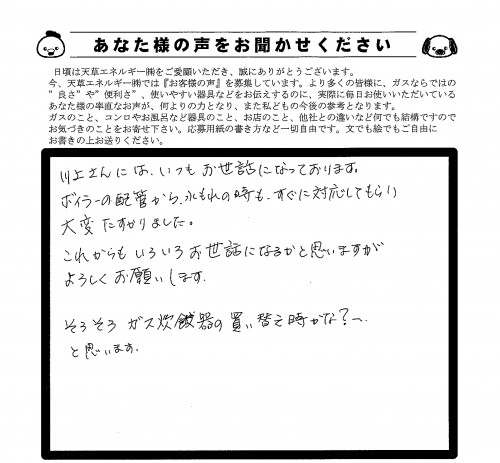 あなた様の声をお聞かせください
日頃は天草エネルギー㈱をご愛顧いただき、誠にありがとうございます。
今、天草エネルギー㈱では『お客様の声』を募集しています。より多くの皆様に、ガスならではの
"良さ"や"便利さ"、使いやすい器具などをお伝えするのに、実際に毎日お使いいただいている
あなた様の率直なお声が、何よりの力となり、また私どもの今後の参考となります。
ガスのこと、コンロやお風呂など器具のこと、お店のこと、他社との違いなど何でも結構ですので
お気づきのことをお寄せ下さい。応募用紙の書き方など一切自由です。文でも絵でもご自由に
お書きの上お送りください。
川上さんには、いつもお世話になっております。
ボイラーの配管から、水もれの時も、すぐに対応してもらい
大変たすかりました。
これからもいろいろお世話になるかと思いますが
よろしくお願いします.
そろそろ ガス炊飯器の買い替え時かな?〜.
と思います.